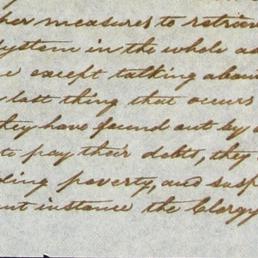 her measures to retriev
system in the whole as
e except talking abou
last thing that occurs
they have found out by
to pay their debts, they
ding poverty, and susp
ent instance the Clergy